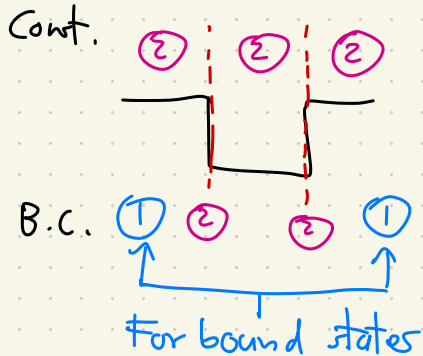 Cont.
2 2 2
B.C. 1 2 2 1
For bound states